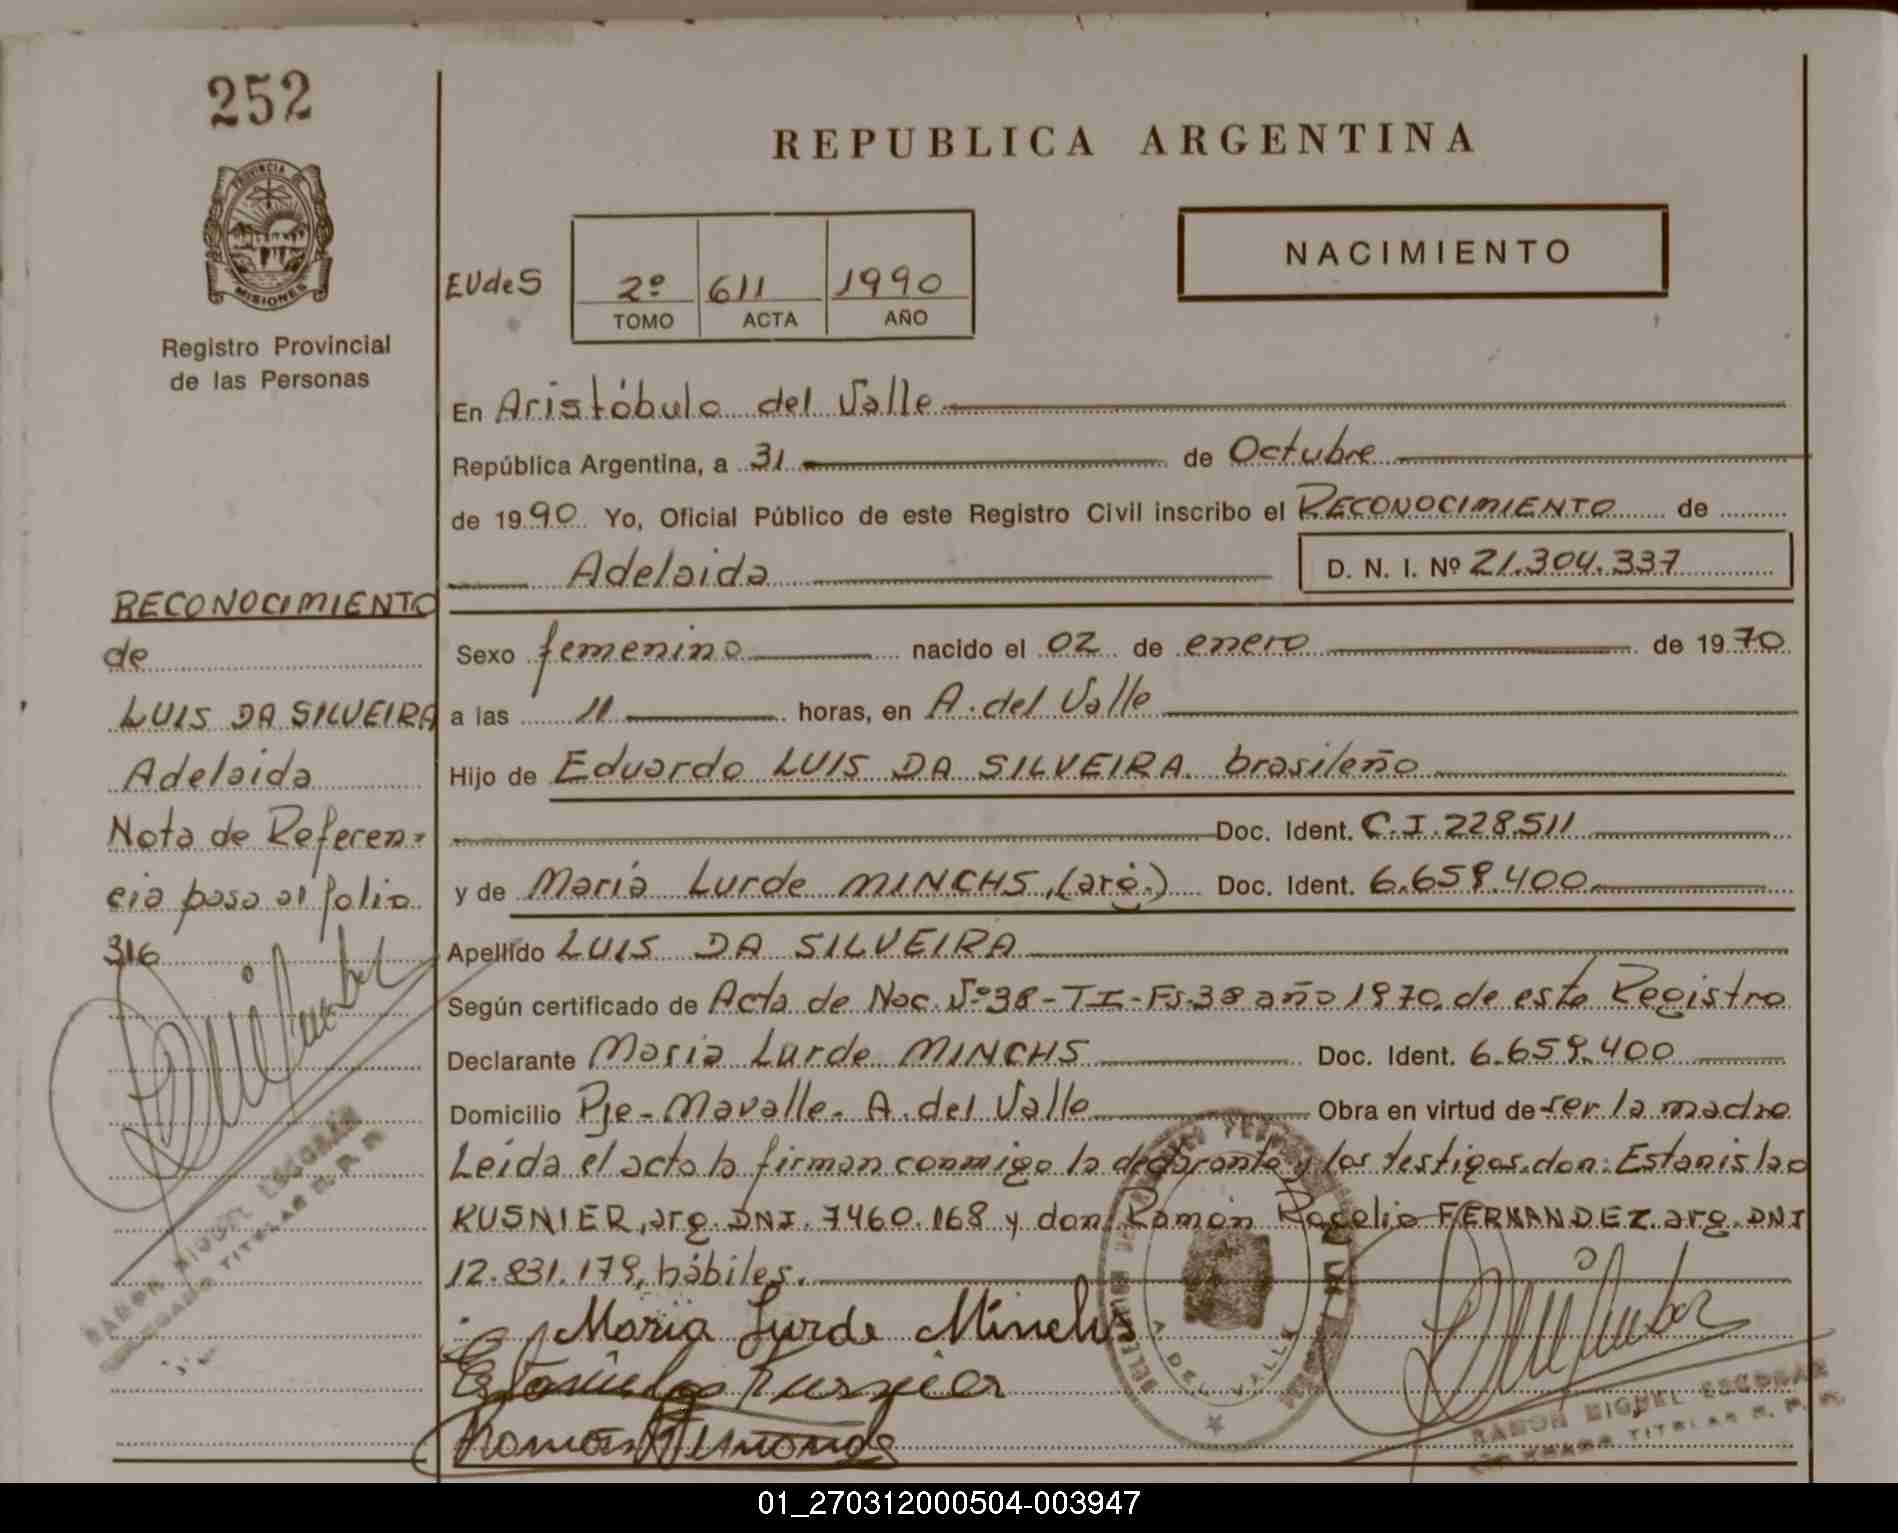 252
REPUBLICA ARGENTINA
PROVINCIA DE
MISIONES
Registro Provincial
de las Personas
EUdeS
2º 611 1990
TOMO ACTA AÑO
NACIMIENTO
En Aristóbulo del Valle
República Argentina, a 31 de Octubre
de 1990 Yo, Oficial Público de este Registro Civil inscribo el RECONOCIMIENTO de
Adelaida D. N. I. Nº 21.304.337
RECONOCIMIENTO
de
LUIS DA SILVEIRA
Adelaida
Nota de Referen-
cia pasa al folio
316
Sexo femenino nacido el 02 de enero de 1970
a las 11 horas, en A. del Valle
Hijo de Eduardo LUIS DA SILVEIRA brasileño
Doc. Ident. C.I. 228.511
y de Maria Lurde MINCHS, (arg.) Doc. Ident. 6.659.400
Apellido LUIS DA SILVEIRA
Según certificado de Acta de Nac. Nº 38-TI-Fs.38 año 1970, de este Registro
Declarante Maria Lurde MINCHS Doc. Ident. 6.659.400
Domicilio Pje- Mavalle- A. del Valle Obra en virtud de ser la madre
Leída el acta la firman conmigo la declarante y los testigos, don: Estanislao
KUSNIER, arg. DNI. 7460.168 y don Ramón Rogelio FERNANDEZ arg. DNI
12.831.179, hábiles.
Maria Lurde Minchs
RAMON MIGUEL ESCOBAR
TITULAR R. P. P.
A. DEL VALLE
RAMON MIGUEL ESCOBAR
TITULAR R. P. P.
01_270312000504-003947